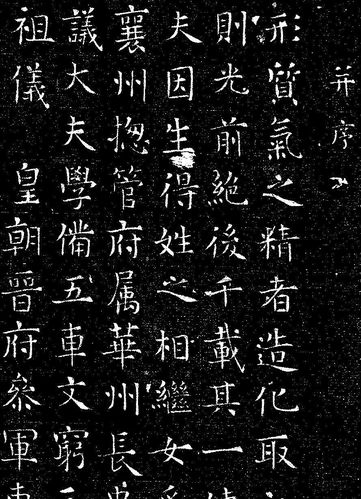 并序
形質氣之精者造化取
則光前絕後千載其一
夫因生得姓之相繼女
襄州揔管府属華州長
議大夫學備五車文窮
祖儀 皇朝晉府叅軍